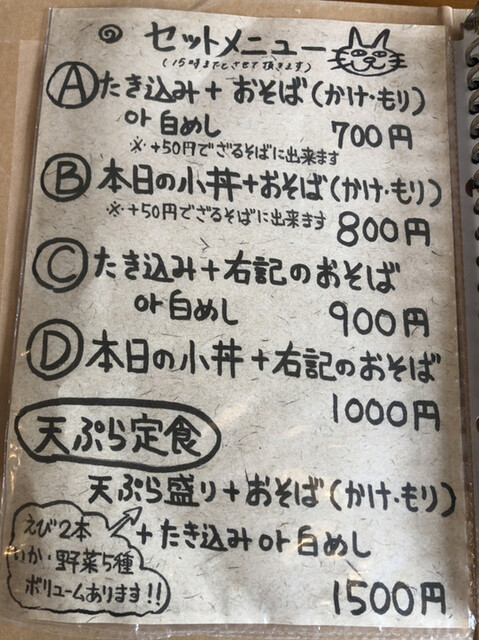 セットメニュー
(15時までとさせて頂きます)
Ⓐたき込み+おそば(かけ・もり)
or 白めし 700円
※+50円でざるそばに出来ます
Ⓑ本日の小丼+おそば(かけ・もり)
※+50円でざるそばに出来ます 800円
Ⓒたき込み+右記のおそば
or 白めし 900円
Ⓓ本日の小丼+右記のおそば
1000円
天ぷら定食
天ぷら盛り+おそば(かけ・もり)
+たき込み or 白めし
えび2本
いか・野菜5種
ボリュームあります!!
1500円